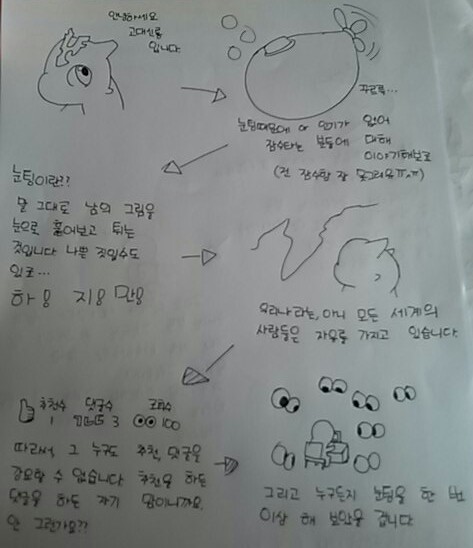 안녕하세요
고대신룡
입니다.
꾸르륵...
눈팅때문에 아 인기가 없어
잠수타는 분들에 대해
이야기해보죠
(전 잠수함 잘 못그려욬ㅠㅅㅠ)
눈팅이란??
말 그대로 남의 그림을
눈으로 훑어보고 튀는
것입니다 나쁜 것일수도
있죠...
하! 지! 만!
우리나라는, 아니 모든 세계의
사람들은 자유를 가지고 있습니다.
추천수 댓글수 조회수
1 3 100
따라서 그 누구도 추천, 댓글을
강요할 수 없습니다 추천을 하든
댓글을 하든 자기 맘이니까요.
안 그런가요??
그리고 누구든지 눈팅을 한 번
이상 해 보았을 겁니다